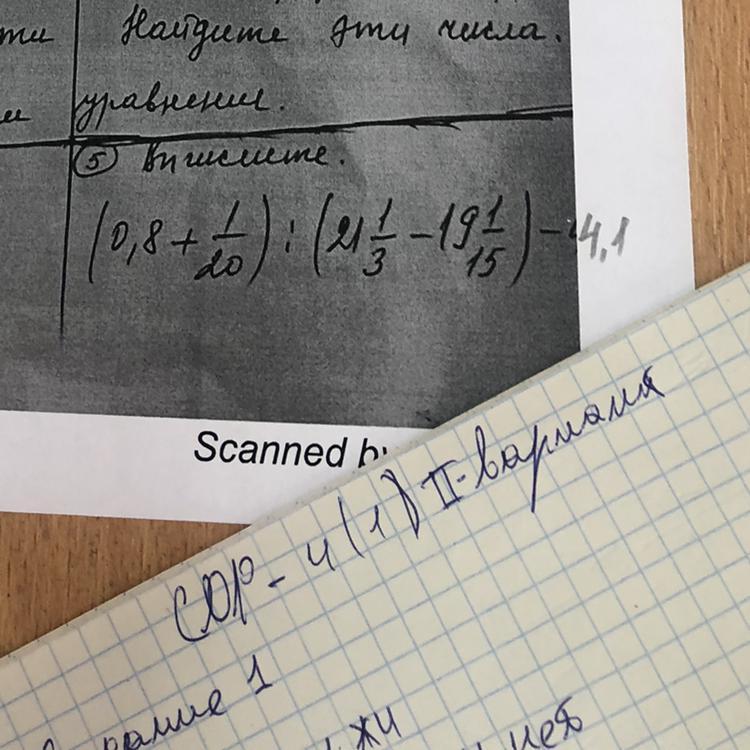 ти Найдите эти числа.
уравнение.
⑤ Вычислите.
(0,8 + 1/20) : (21 1/3 - 19 1/15) - 4,1
Scanned by
СОР - 4 (1) II - вариант
1